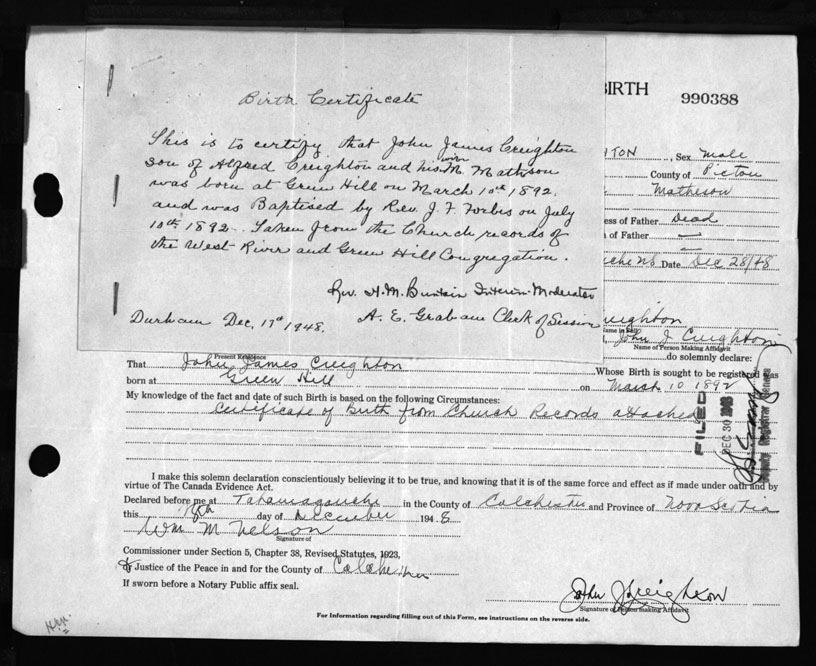 Birth Certificate
This is to certify that John James Creighton
son of Alfred Creighton and his wife M. Matheson
was born at Green Hill on March 10th 1892.
and was Baptised by Rev. J. F. Forbes on July
10th 1892. Taken from the Church records of
the West River and Green Hill Congregation.
Rev. H. M. Buntain Interim-Moderator
Durham Dec. 17th 1948. A. E. Graham Clerk of Session
BIRTH 990388
TON, Sex Male
County of Pictou
Matheson
ess of Father Dead
n of Father —
Date Dec 28/48
Creighton
Name in Full
John J Creighton
Name of Person Making Affidavit
Present Residence
do solemnly declare:
That John James Creighton Whose Birth is sought to be registered was
born at Green Hill on March 10 1892
My knowledge of the fact and date of such Birth is based on the following Circumstances:
Certificate of Birth from Church Records attached
FILED
DEC 30 1948
Deputy Registrar General
I make this solemn declaration conscientiously believing it to be true, and knowing that it is of the same force and effect as if made under oath and by
virtue of The Canada Evidence Act.
Declared before me at Tatamagouche in the County of Colchester and Province of Nova Scotia
this day of December 1948
Wm M Nelson
Signature of
Commissioner under Section 5, Chapter 38, Revised Statutes, 1923,
Justice of the Peace in and for the County of Colchester
If sworn before a Notary Public affix seal.
John J Creighton
Signature of Person making Affidavit
For Information regarding filling out of this Form, see instructions on the reverse side.